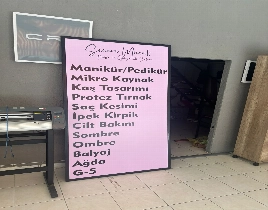 Manikür/Pedikür
Mikro Kaynak
Kaş Tasarımı
Protez Tırnak
Saç Kesimi
İpek Kirpik
Cilt Bakımı
Sombre
Ombre
Balyaj
Ağda
G-5